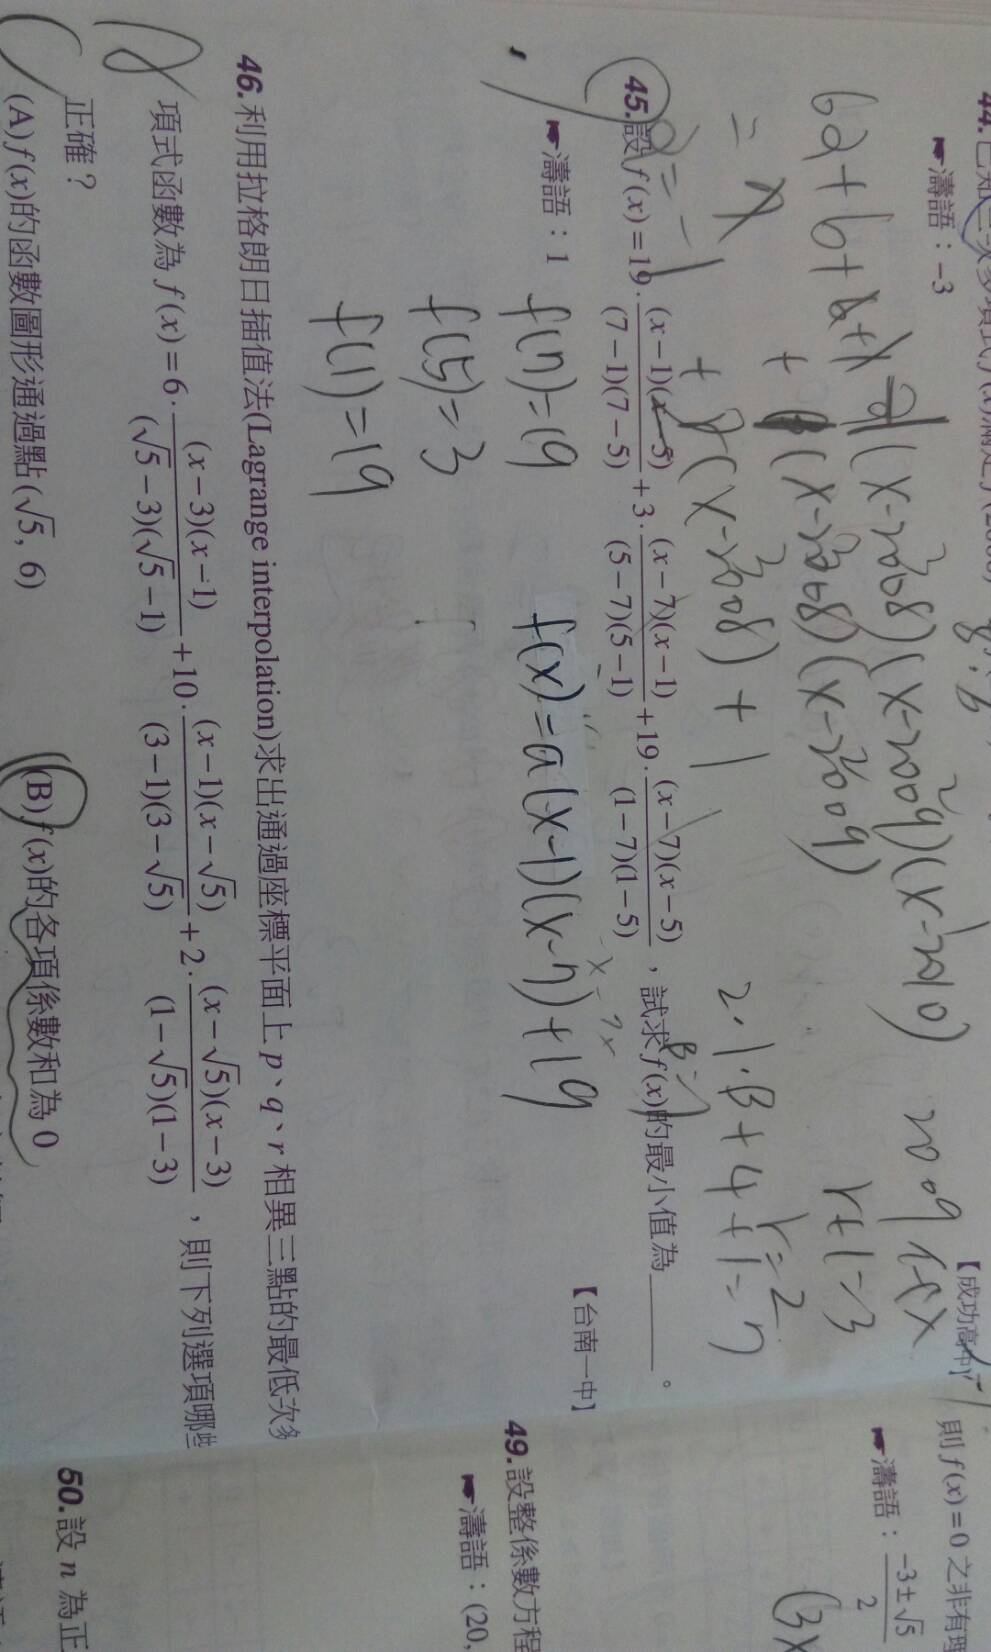 ☛濤語：-3
【成功高中】
6a+b+
(x-2008)(x-2009)(x-2010)
2009 代x
+ (x-2008)(x-2009)
r+1=3
+ (x-2008)+1
2·1·B+4+1=7
r=2
a=-1
45.設f(x)=19·\frac{(x-1)(x-5)}{(7-1)(7-5)}+3·\frac{(x-7)(x-1)}{(5-7)(5-1)}+19·\frac{(x-7)(x-5)}{(1-7)(1-5)}，試求f(x)的最小值為______。
☛濤語：1
【台南一中】
f(7)=19
f(x)=a(x-1)(x-7)+19
f(5)=3
f(1)=19
46.利用拉格朗日插值法(Lagrange interpolation)求出通過座標平面上p、q、r相異三點的最低次多
項式函數為f(x)=6·\frac{(x-3)(x-1)}{(√5-3)(√5-1)}+10·\frac{(x-1)(x-√5)}{(3-1)(3-√5)}+2·\frac{(x-√5)(x-3)}{(1-√5)(1-3)}，則下列選項哪些
正確？
(A)f(x)的函數圖形通過點(√5, 6)
(B)f(x)的各項係數和為0
則f(x)=0之非有理
☛濤語：\frac{-3±√5}{2}
(3x
49.設整係數方程
☛濤語：(20,
50.設n為正